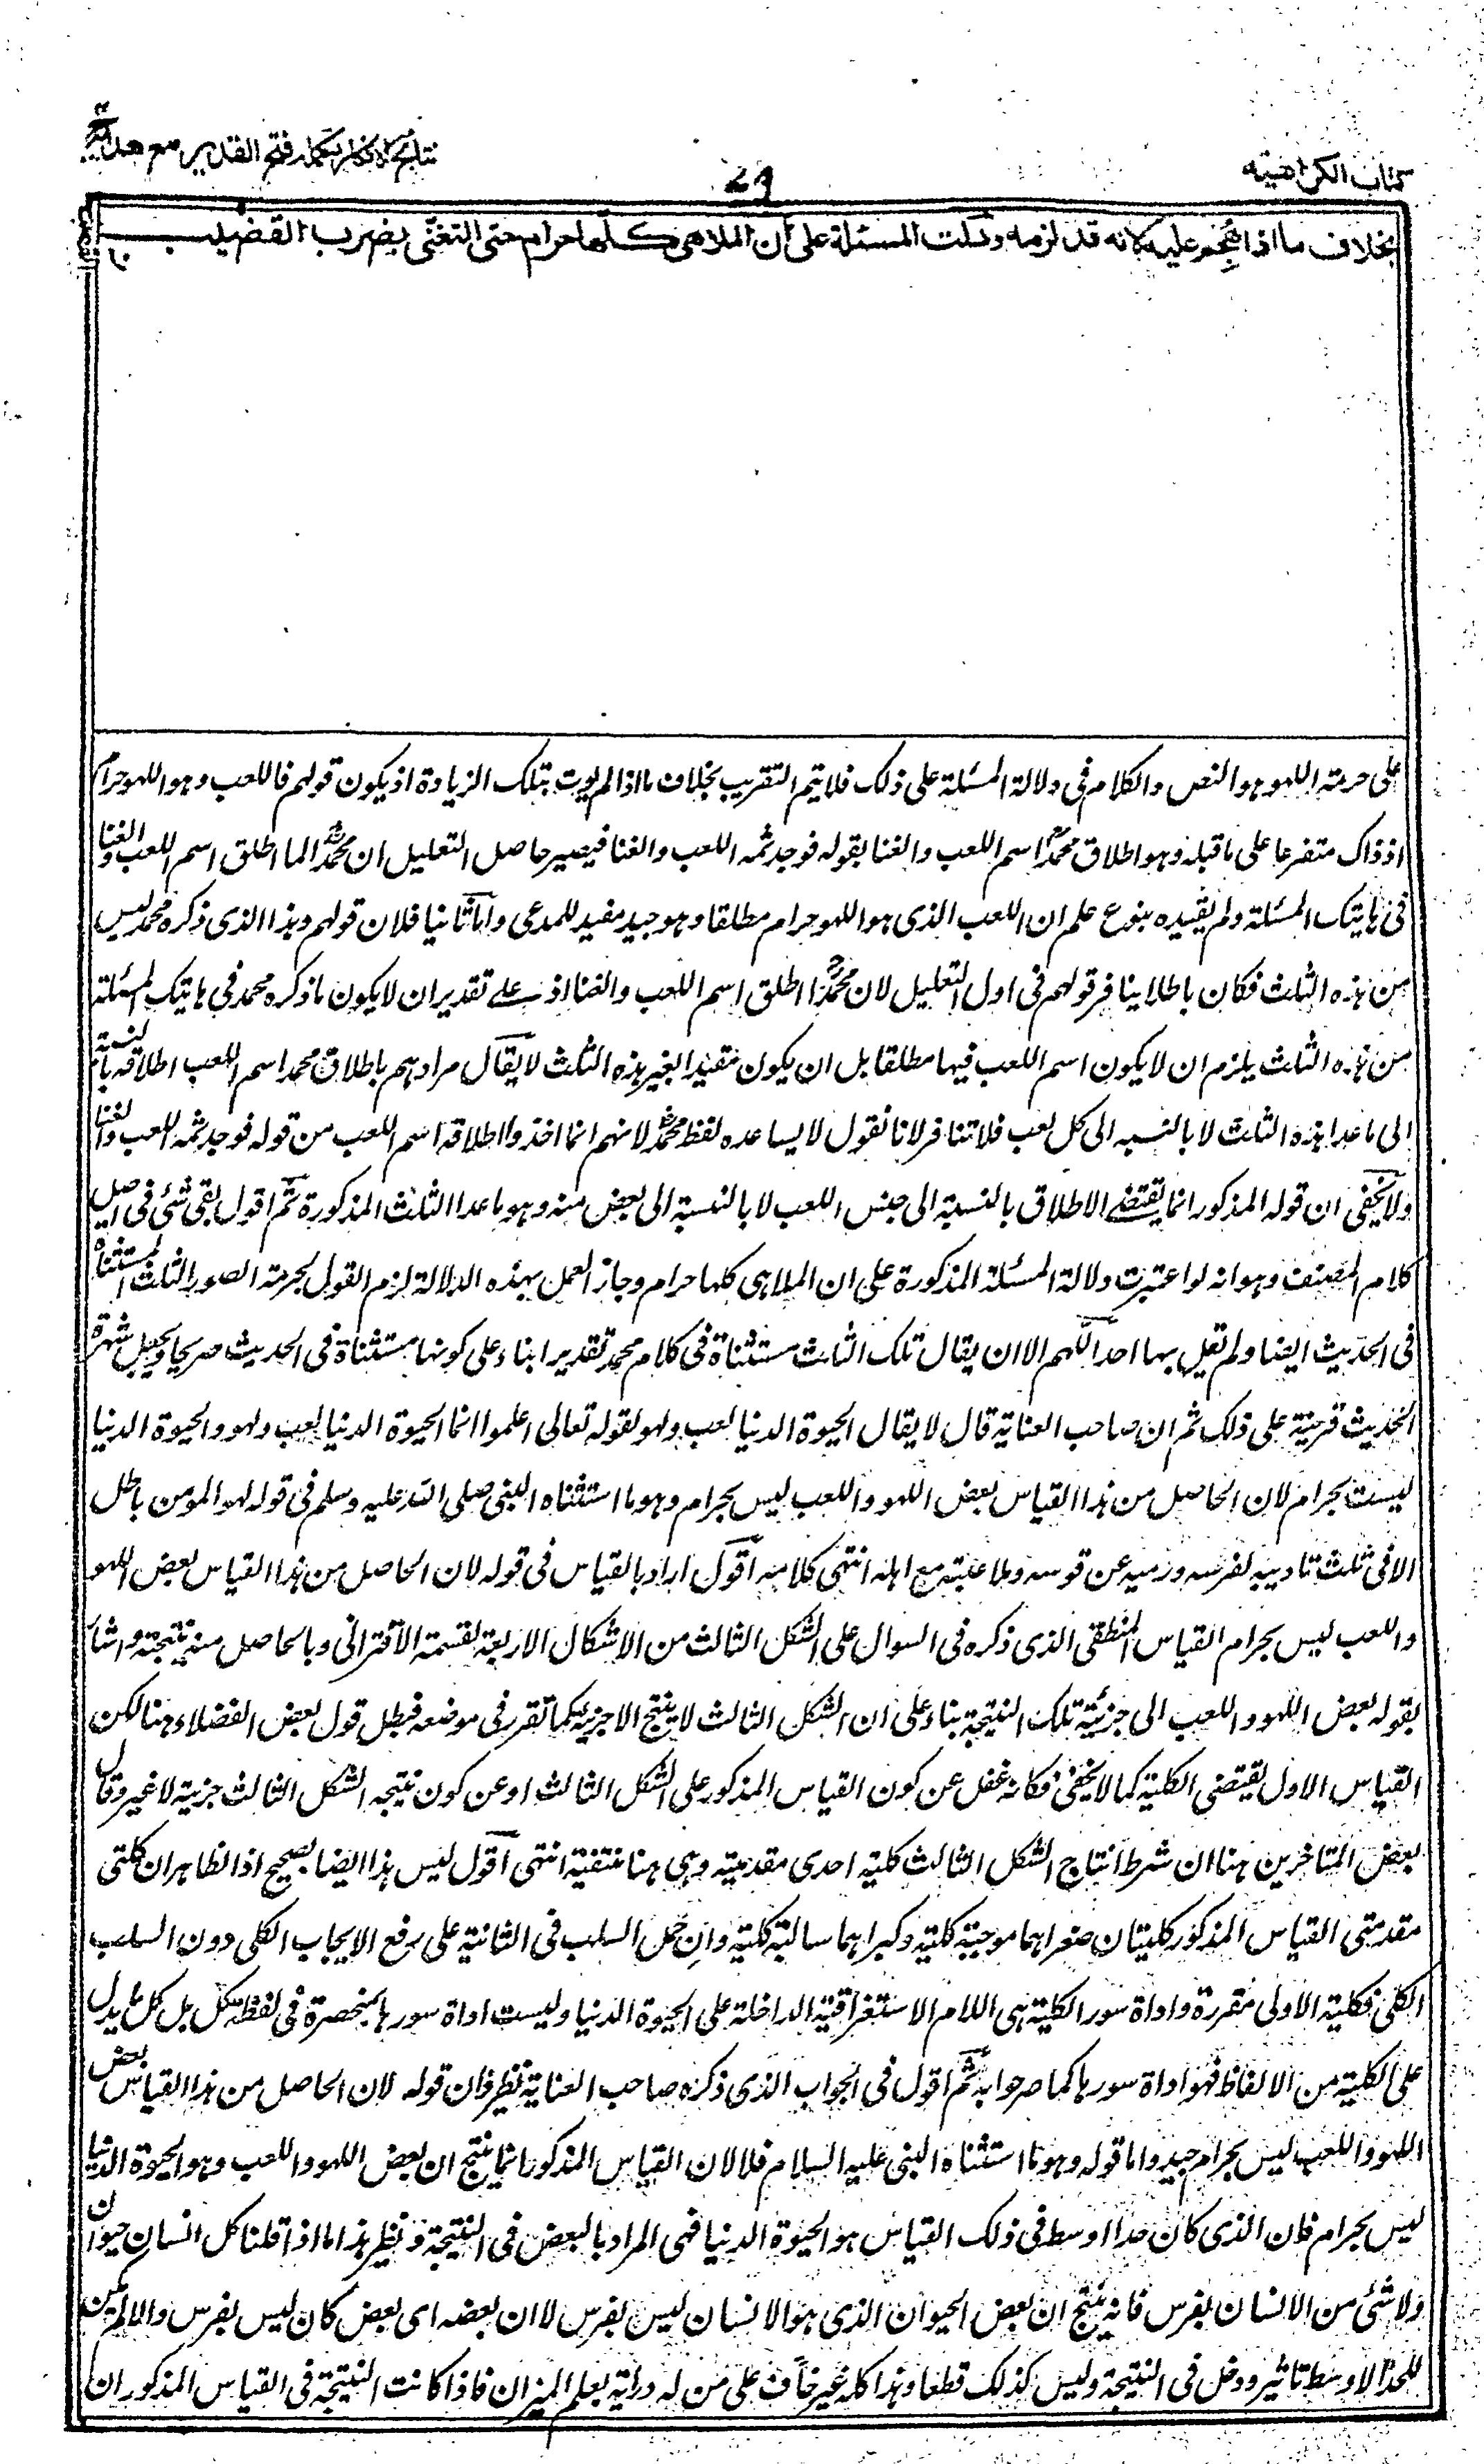 كتاب الكراهية
نتايج الافكار تكملة فتح القدير مع هداية
بخلاف ما اذا هجم عليه لانه قد لزمه ودلت المسئلة على ان الملاهى كلها حرام حتى التغنى بضرب القضيب
على حرمة اللهو هو النص والكلام فى دلالة المسئلة على ذلك فلا يتم التقريب بخلاف ما اذا لم يوت بتلك الزيادة اذ يكون قولهم فاللعب وهو اللهو حرام
اذ ذاك متفرعا على ما قبله وهو اطلاق محمد اسم اللعب والغنا بقوله فوجد ثمه اللعب والغنا فيصير حاصل التعليل ان محمدا لما اطلق اسم اللعب والغنا
فى هاتيك المسئلة ولم يقيده بنوع علم ان اللعب الذى هو اللهو حرام مطلقا وهو جيد مفيد للمدعى واما ثانيا فلان قولهم وهذا الذى ذكره محمد ليس
من هذه الثلث فكان باطلا ينافر قولهم فى اول التعليل لان محمدا اطلق اسم اللعب والغنا اذ على تقدير ان لا يكون ما ذكره محمد فى هاتيك المسئلة
من هذه الثلث يلزم ان لا يكون اسم اللعب فيها مطلقا بل ان يكون مقيدا بغير هذه الثلث لا يقال مرادهم باطلاق محمد اسم اللعب اطلاقه بالنسبة
الى ما عدا هذه الثلث لا بالنسبه الى كل لعب فلا تنافر لانا نقول لا يساعده لفظ محمد لانهم انما اخذوا اطلاقه اسم اللعب من قوله فوجد ثمه اللعب والغنا
ولا يخفى ان قوله المذكور انما يقتضى الاطلاق بالنسبة الى جنس اللعب لا بالنسبة الى بعض منه وهو ما عدا الثلث المذكورة ثم اقول بقى شئ فى اصل
كلام المصنف وهو انه لو اعتبرت دلالة المسئلة المذكورة على ان الملاهى كلها حرام وجاز العمل بهذه الدلالة لزم القول بحرمة الصور الثلث المستثناة
فى الحديث ايضا ولم تقل بها احد اللهم الا ان يقال تلك الثلث مستثناة فى كلام محمد تقديرا بناء على كونها مستثناة فى الحديث صريحا ويجعل شهرة
الحديث قرينة على ذلك ثم ان صاحب العناية قال لا يقال الحيوة الدنيا لعب ولهو لقوله تعالى اعلموا انما الحيوة الدنيا لعب ولهو والحيوة الدنيا
ليست بحرام لان الحاصل من هذا القياس بعض اللهو واللعب ليس بحرام وهو ما استثناه النبى صلى الله عليه وسلم فى قوله لهو المومن باطل
الا فى ثلث تاديبه لفرسه ورميه عن قوسه وملاعبته مع اهله انتهى كلامه اقول اراد بالقياس فى قوله لان الحاصل من هذا القياس بعض اللهو
واللعب ليس بحرام القياس المنطقى الذى ذكره فى السوال على الشكل الثالث من الاشكال الاربعة لقسمة الاقترانى وبالحاصل منه نتيجته واشار
بقوله بعض اللهو واللعب الى جزئية تلك النتيجة بناء على ان الشكل الثالث لا ينتج الا جزئية كما تقرر فى موضعه فبطل قول بعض الفضلاء هنا لكن
القياس الاول يقتضى الكلية كما لا يخفى فكانه غفل عن كون القياس المذكور على الشكل الثالث او عن كون نتيجه الشكل الثالث جزئية لا غير وقال
بعض المتاخرين هنا ان شرط انتاج الشكل الثالث كلية احدى مقدمتيه وهى هنا منتفية انتهى اقول ليس هذا ايضا بصحيح اذ الظاهر ان كلتى
مقدمتى القياس المذكور كليتان صغراهما موجبة كلية وكبراهما سالبة كلية وان حمل السلب فى الثانية على رفع الايجاب الكلى دون السلب
الكلى فكلية الاولى مقررة واداة سور الكلية هى اللام الاستغراقية الداخلة على الحيوة الدنيا وليست اداة سورها منحصرة فى لفظة كل بل كل ما يدل
على الكلية من الالفاظ فهو اداة سورها كما صرحوا به ثم اقول فى الجواب الذى ذكره صاحب العناية نظر فان قوله لان الحاصل من هذا القياس بعض
اللهو واللعب ليس بحرام جيد واما قوله وهو ما استثناه النبى عليه السلام فلا لان القياس المذكور انما ينتج ان بعض اللهو واللعب وهو الحيوة الدنيا
ليس بحرام فان الذى كان حدا اوسط فى ذلك القياس هو الحيوة الدنيا فهى المراد بالبعض فى النتيجة ونظير هذا ما اذا قلنا كل انسان حيوان
ولا شئ من الانسان بفرس فانه ينتج ان بعض الحيوان الذى هو الانسان ليس بفرس لا ان بعضه اى بعض كان ليس بفرس والا لم يكن
للحد الاوسط تاثير ودخل فى النتيجة وليس كذلك قطعا وهذا كله غير خاف على من له دراية بعلم الميزان فاذا كانت النتيجة فى القياس المذكور ان